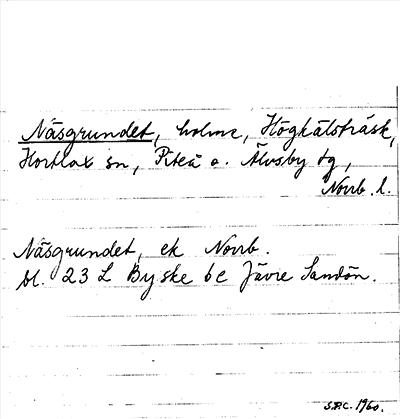 Näsgrundet, holme, Högkälsträsk,
Hortlax sn, Piteå o. Älvsby tg,
Norrb. l.
Näsgrundet, ek Norrb.
bl. 23 L Byske 6 c Jävre Sandön.
S.P.C. 1960.